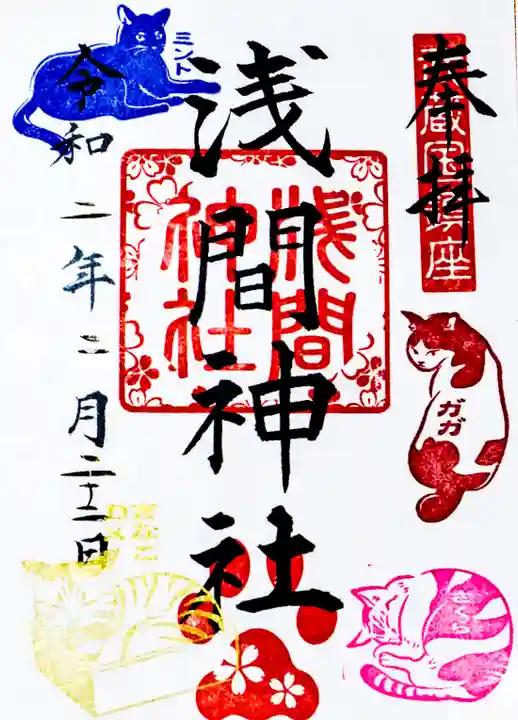 奉拝
武蔵国鎮座
浅間神社
浅間
神社
令和二年二月二十二日
ミント
ガガ
さくら